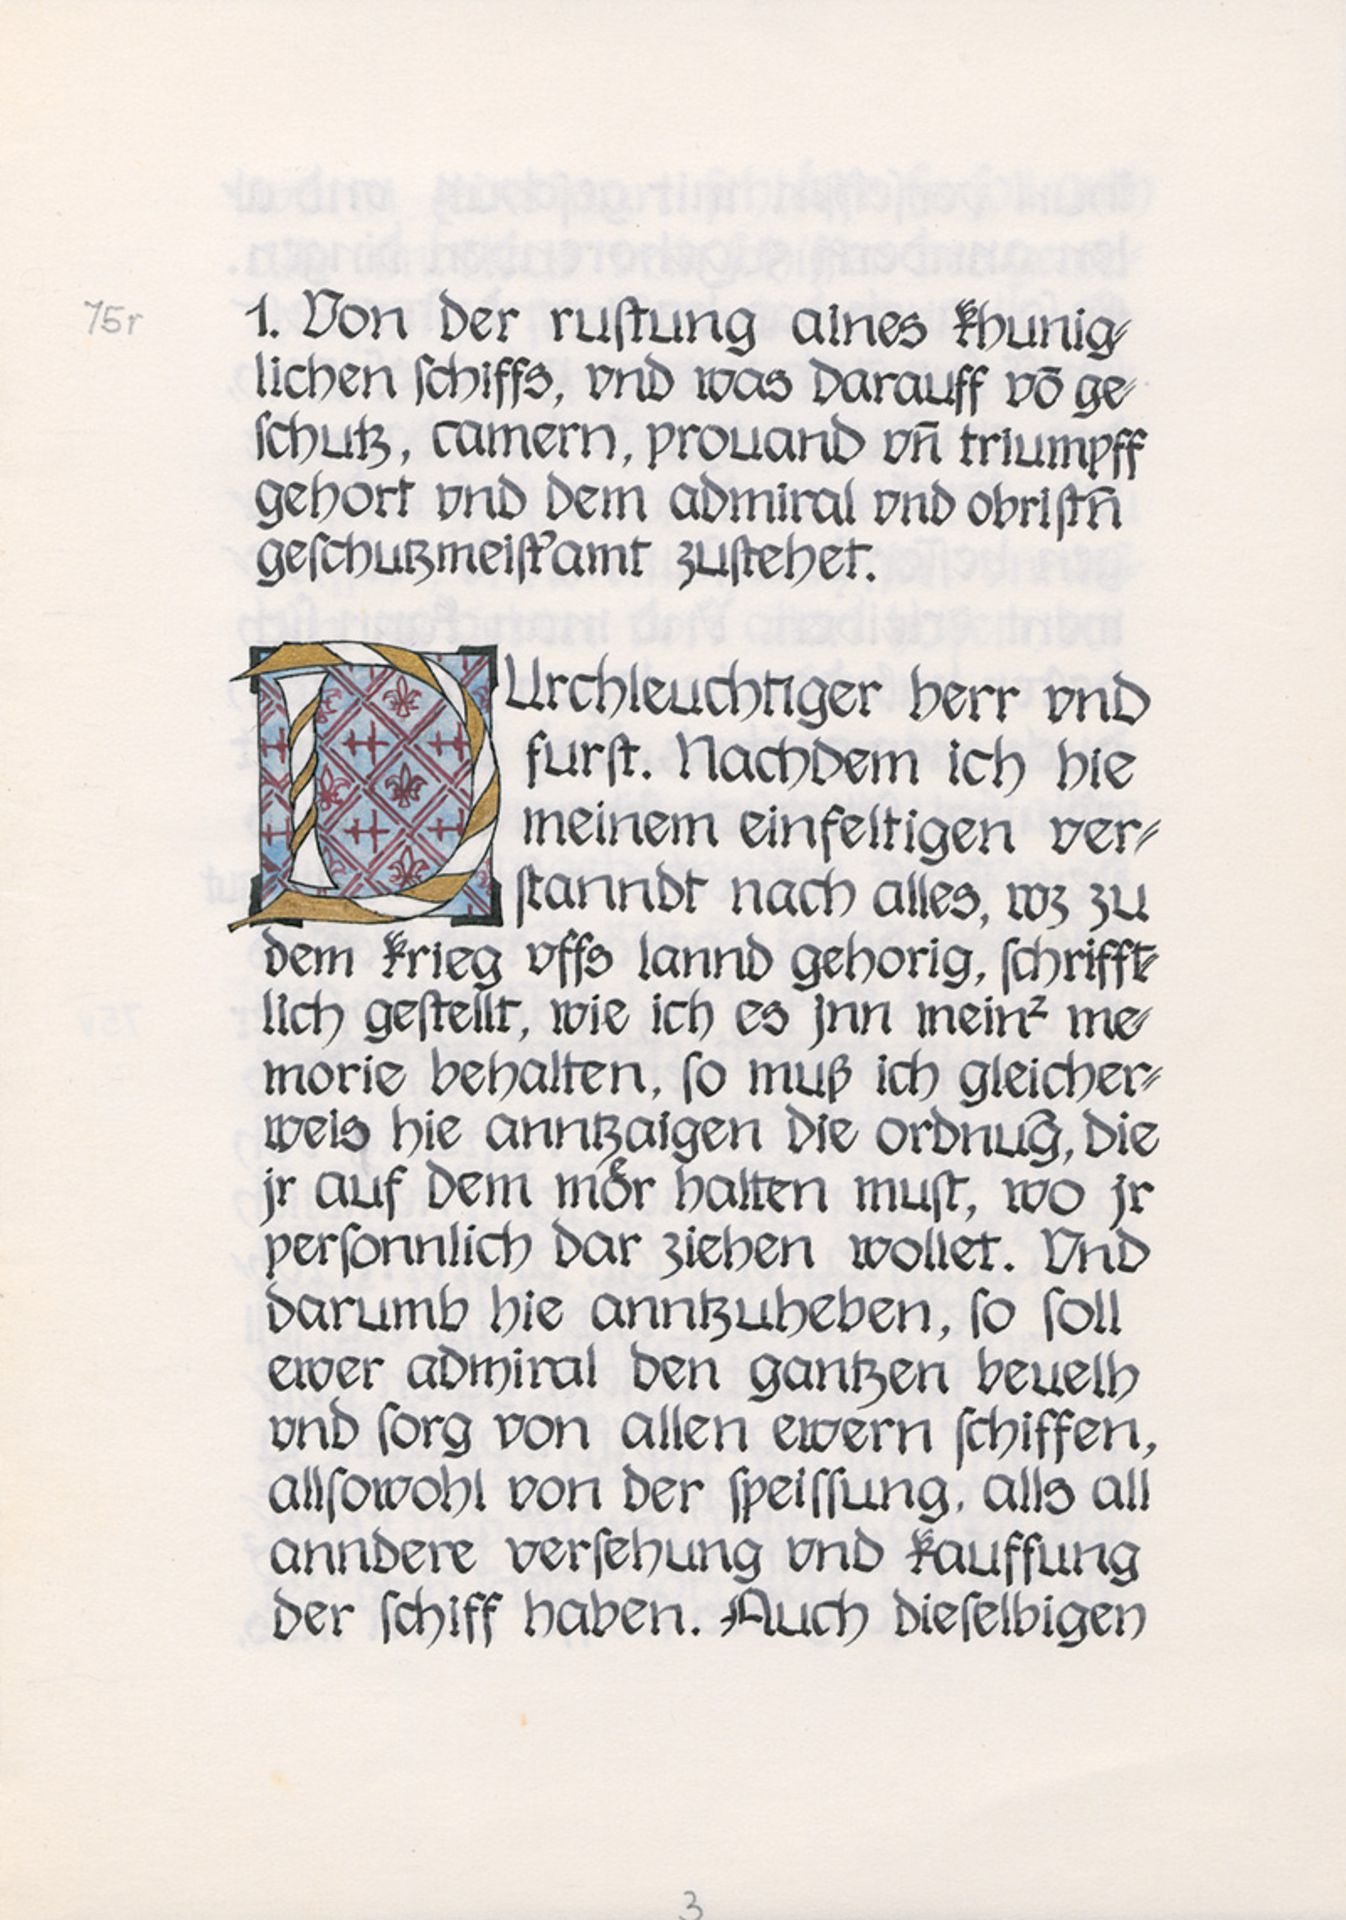 75r
1. Von der ruſtung aines khunig⸗
lichen ſchiffs, vnd was darauff vō ge⸗
ſchutz, camern, prouand vñ triumpff
gehort vnd dem admiral vnd obriſtn̄
geſchutzmeiſt'amt zuſtehet.
DUrchleuchtiger herr vnd
furſt. Nachdem ich hie
meinem einfeltigen ver⸗
ſtanndt nach alles, wz zu
dem krieg vffs lannd gehorig, ſchrifft⸗
lich geſtellt, wie ich es jnn meinꝛ me⸗
morie behalten, ſo muß ich gleicher⸗
weis hie anntzaigen die ordnuḡ, die
jr auf dem moͤr halten muſt, wo jr
perſonnlich dar ziehen wollet. Vnd
darumb hie anntzuheben, ſo ſoll
ewer admiral den gantzen beuelh
vnd ſorg von allen ewern ſchiffen,
allſowohl von der ſpeiſſung, alls all
anndere verſehung vnd kauffung
der ſchiff haben. Auch dieſelbigen
3